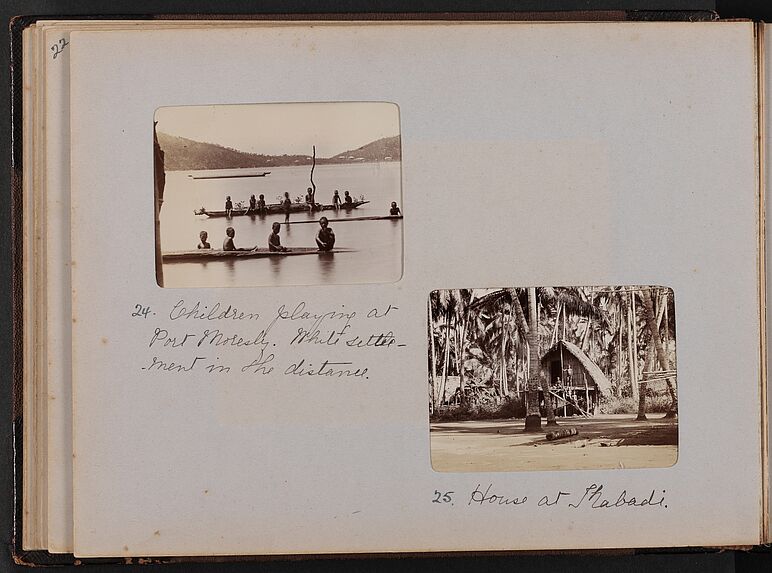 22
24. Children playing at
Port Moresby. White settle-
-ment in the distance.
25. House at Kabadi.